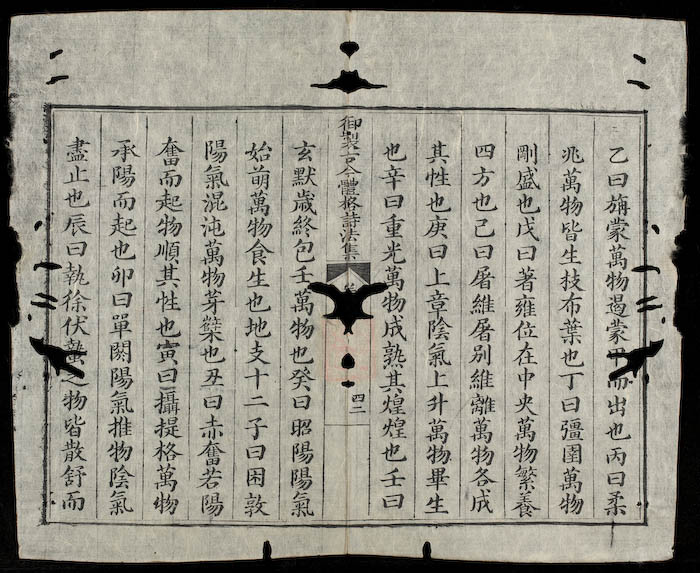 乙曰旃蒙萬物遏蒙甲而出也丙曰柔
兆萬物皆生技布葉也丁曰彊圉萬物
剛盛也戊曰著雍位在中央萬物繁養
四方也己曰屠維屠別維離萬物各成
其性也庚曰上章陰氣上升萬物畢生
也辛曰重光萬物成熟其煌煌也壬曰
御製古今體格詩法集
四二
玄默歲終包壬萬物也癸曰昭陽陽氣
始萌萬物食生也地支十二子曰困敦
陽氣混沌萬物芽櫱也丑曰赤奮若陽
奮而起物順其性也寅曰攝提格萬物
承陽而起也卯曰單閼陽氣推物陰氣
盡止也辰曰執徐伏蟄之物皆散舒而